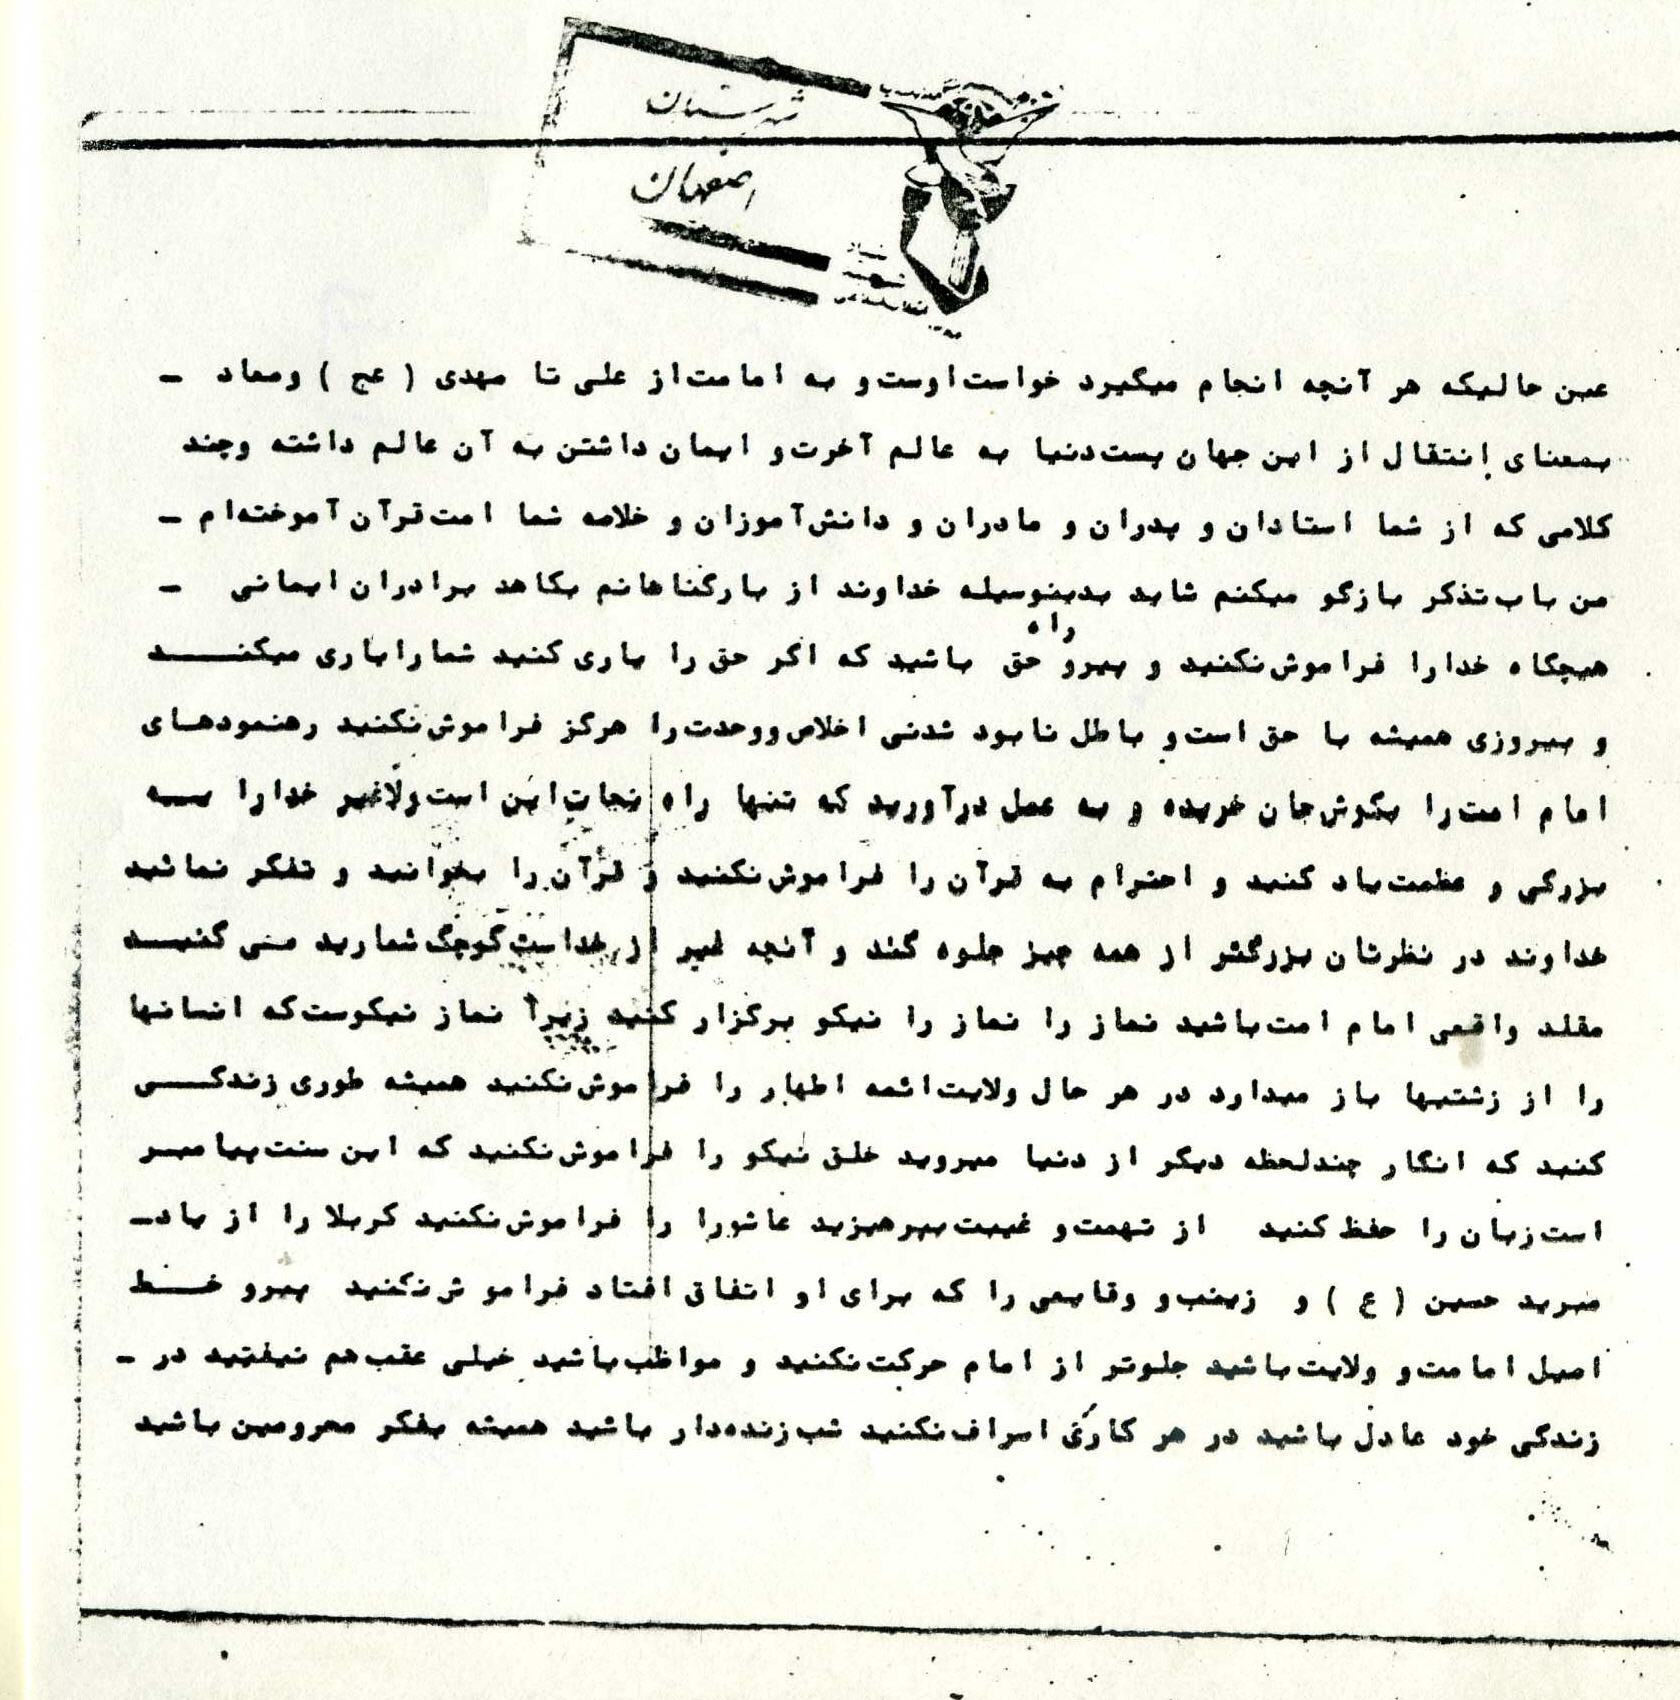 شهرستان
اصفهان
عین حالیکه هر آنچه انجام میگیرد خواست اوست و به امامت از علی تا مهدی ( عج ) ومعاد ـ
بمعنای انتقال از این جهان پست دنیا به عالم آخرت و ایمان داشتن به آن عالم داشته وچند
کلامی که از شما استادان و پدران و مادران و دانش آموزان و خلاصه شما امت قرآن آموخته‌ام ـ
من باب تذکر بازگو میکنم شاید بدینوسیله خداوند از بارگناهانم بکاهد برادران ایمانی ـ
هیچگاه خدارا فراموش نکنید و پیرو راه حق باشید که اگر حق را یاری کنید شمارایاری میکنـــد
و پیروزی همیشه با حق است و باطل نابود شدنی اخلاص ووحدت را هرگز فراموش نکنید رهنمودهـای
امام امت را بگوش جان خریده و به عمل درآورید که تنها راه نجات این است ولاغیر خدارا بـــه
بزرگی و عظمت یاد کنید و احترام به قرآن را فراموش نکنید و قرآن را بخوانید و تفکر نمائید
خداوند در نظرتان بزرگتر از همه چیز جلوه کند و آنچه غیر از خداست کوچک شمارید سـعی کنیـــد
مقلد واقعی امام امت باشید نماز را نماز را نیکو برگزار کنید زیرا نماز نیکوست که انسانها
را از زشتیها باز میدارد در هر حال ولایت ائمه اطهار را فراموش نکنید همیشه طوری زندگـــی
کنید که انگار چندلحظه دیگر از دنیا میروید خلق نیکو را فراموش نکنید که این سنت پیامبـر
است زبان را حفظ کنید از تهمت و غیبت بپرهیزید عاشورا را فراموش نکنید کربلا را از یادـ
مبرید حسین ( ع ) و زینب و وقایعی را که برای او اتفاق افتاد فرامو ش نکنید پیرو خـــط
اصیل امامت و ولایت باشید جلوتر از امام حرکت نکنید و مواظب باشید خیلی عقب هم نیفتید در ـ
زندگی خود عادل باشید در هر کاری اسراف نکنید شب زنده‌دار باشید همیشه بفکر محرومین باشید